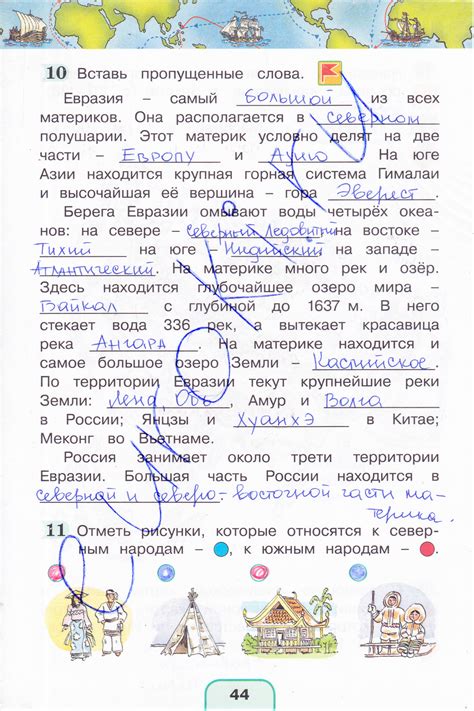 10 Вставь пропущенные слова.
Евразия – самый большой из всех
материков. Она располагается в северном
полушарии. Этот материк условно делят на две
части – Европу и Азию. На юге
Азии находится крупная горная система Гималаи
и высочайшая её вершина – гора Эверест.
Берега Евразии омывают воды четырёх океа-
нов: на севере – Северный Ледовитый на востоке –
Тихий на юге – Индийский на западе –
Атлантический. На материке много рек и озёр.
Здесь находится глубочайшее озеро мира –
Байкал с глубиной до 1637 м. В него
стекает вода 336 рек, а вытекает красавица
река Ангара. На материке находится и
самое большое озеро Земли – Каспийское.
По территории Евразии текут крупнейшие реки
Земли: Лена, Обь, Амур и Волга
в России; Янцзы и Хуанхэ в Китае;
Меконг во Вьетнаме.
Россия занимает около трети территории
Евразии. Большая часть России находится в
северной и северо-восточной части ма-
терика.
11 Отметь рисунки, которые относятся к север-
ным народам – , к южным народам – .
44